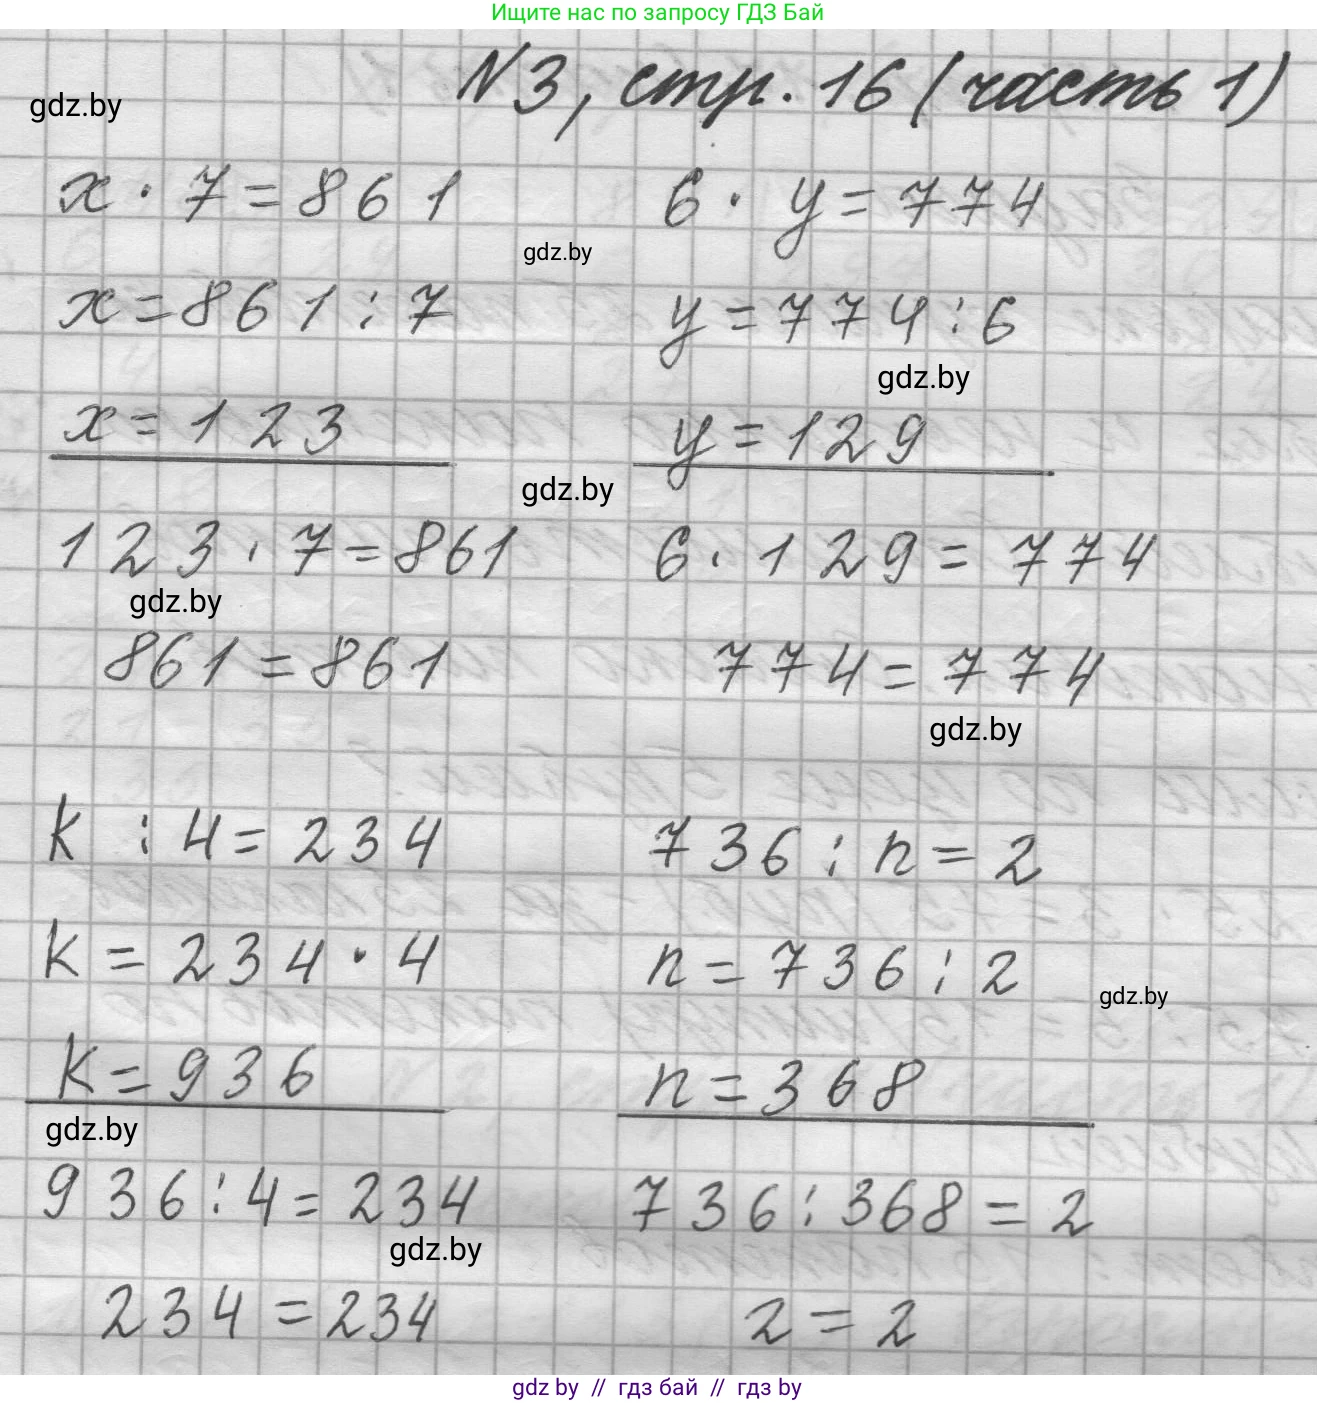 Ищите нас по запросу ГДЗ Бай
N3, стр. 16 (часть 1)
gdz.by
x · 7 = 861
6 · y = 774
gdz.by
x = 861 : 7
y = 774 : 6
gdz.by
x = 123
y = 129
gdz.by
123 · 7 = 861
6 · 129 = 774
gdz.by
861 = 861
774 = 774
gdz.by
k : 4 = 234
736 : n = 2
k = 234 · 4
n = 736 : 2
gdz.by
k = 936
n = 368
gdz.by
936 : 4 = 234
736 : 368 = 2
gdz.by
234 = 234
2 = 2
gdz by // гдз бай // гдз by